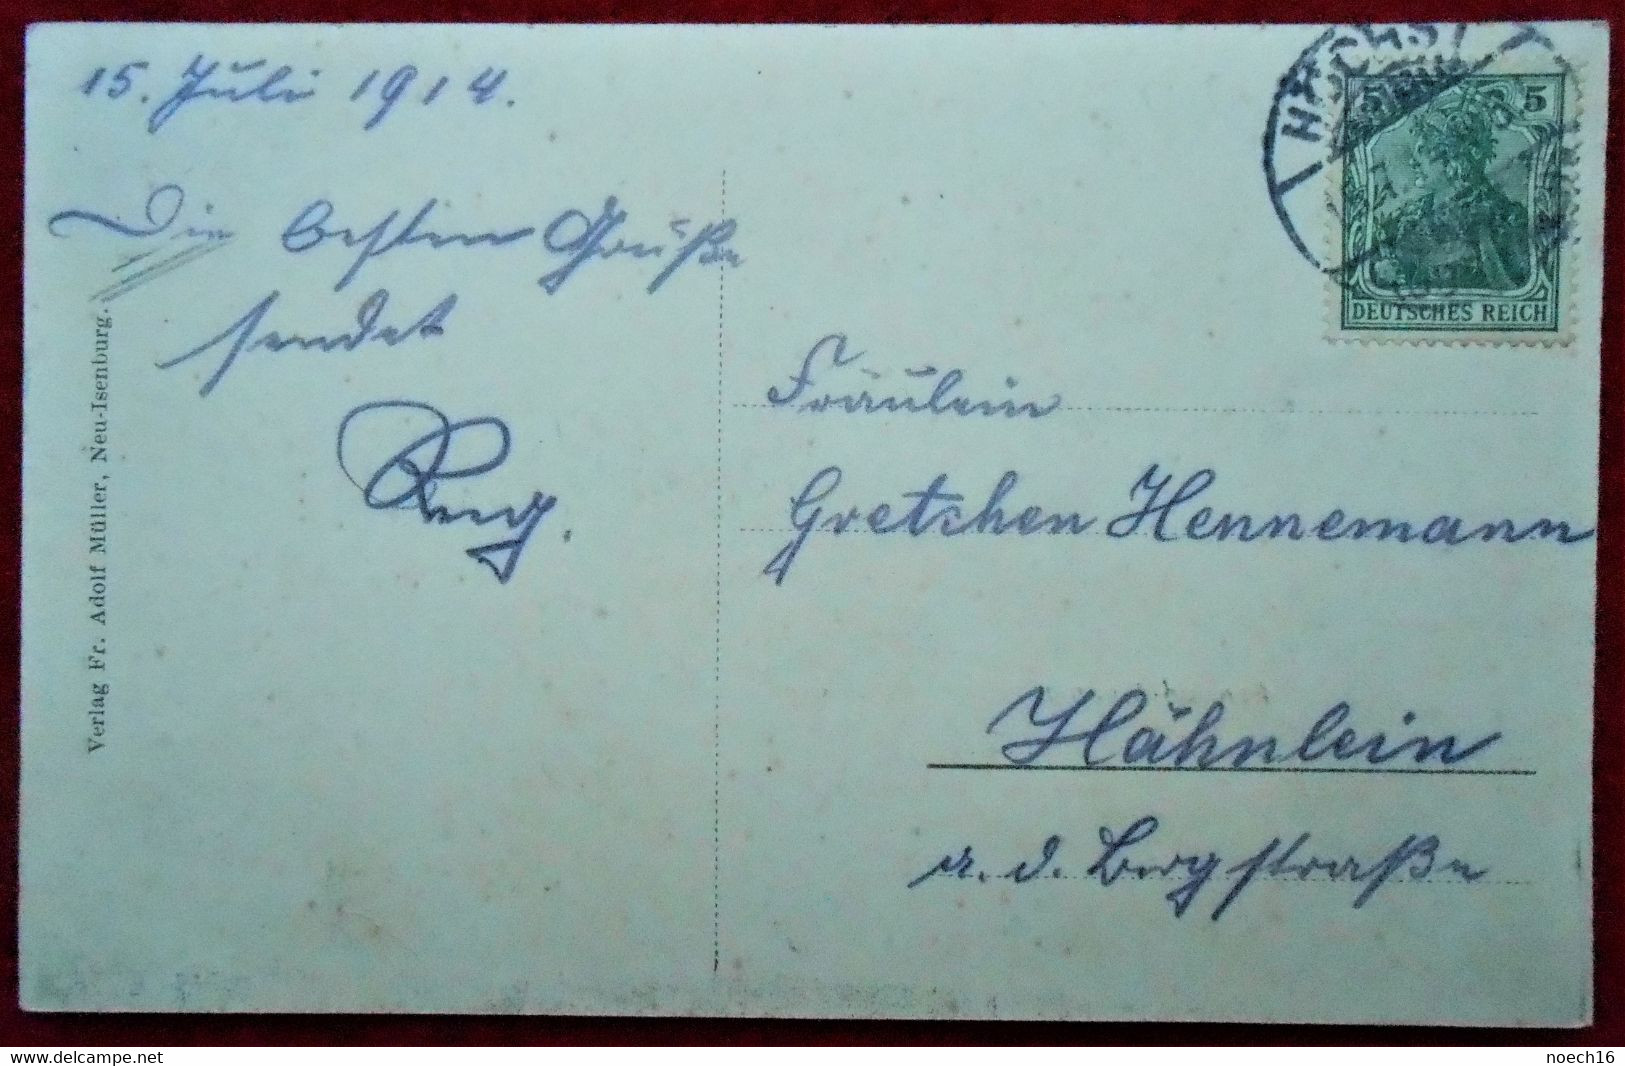 15. Juli 1914.
Die besten Grüße
sendet
Verlag Fr. Adolf Müller, Neu-Isenburg.
HÖCHST
5 5
DEUTSCHES REICH
Fräulein
Gretchen Hennemann
Hähnlein
a. d. Bergstraße
noech16